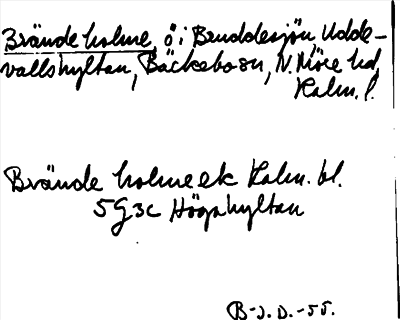 Brände holme, ö i Bruddesjön, Udde-
vallshyltan, Bäckebo sn, N. Möre hd,
Kalm. l.
Brände holme ek Kalm. bl.
5G3c Högahyltan
B-J. D. -55.